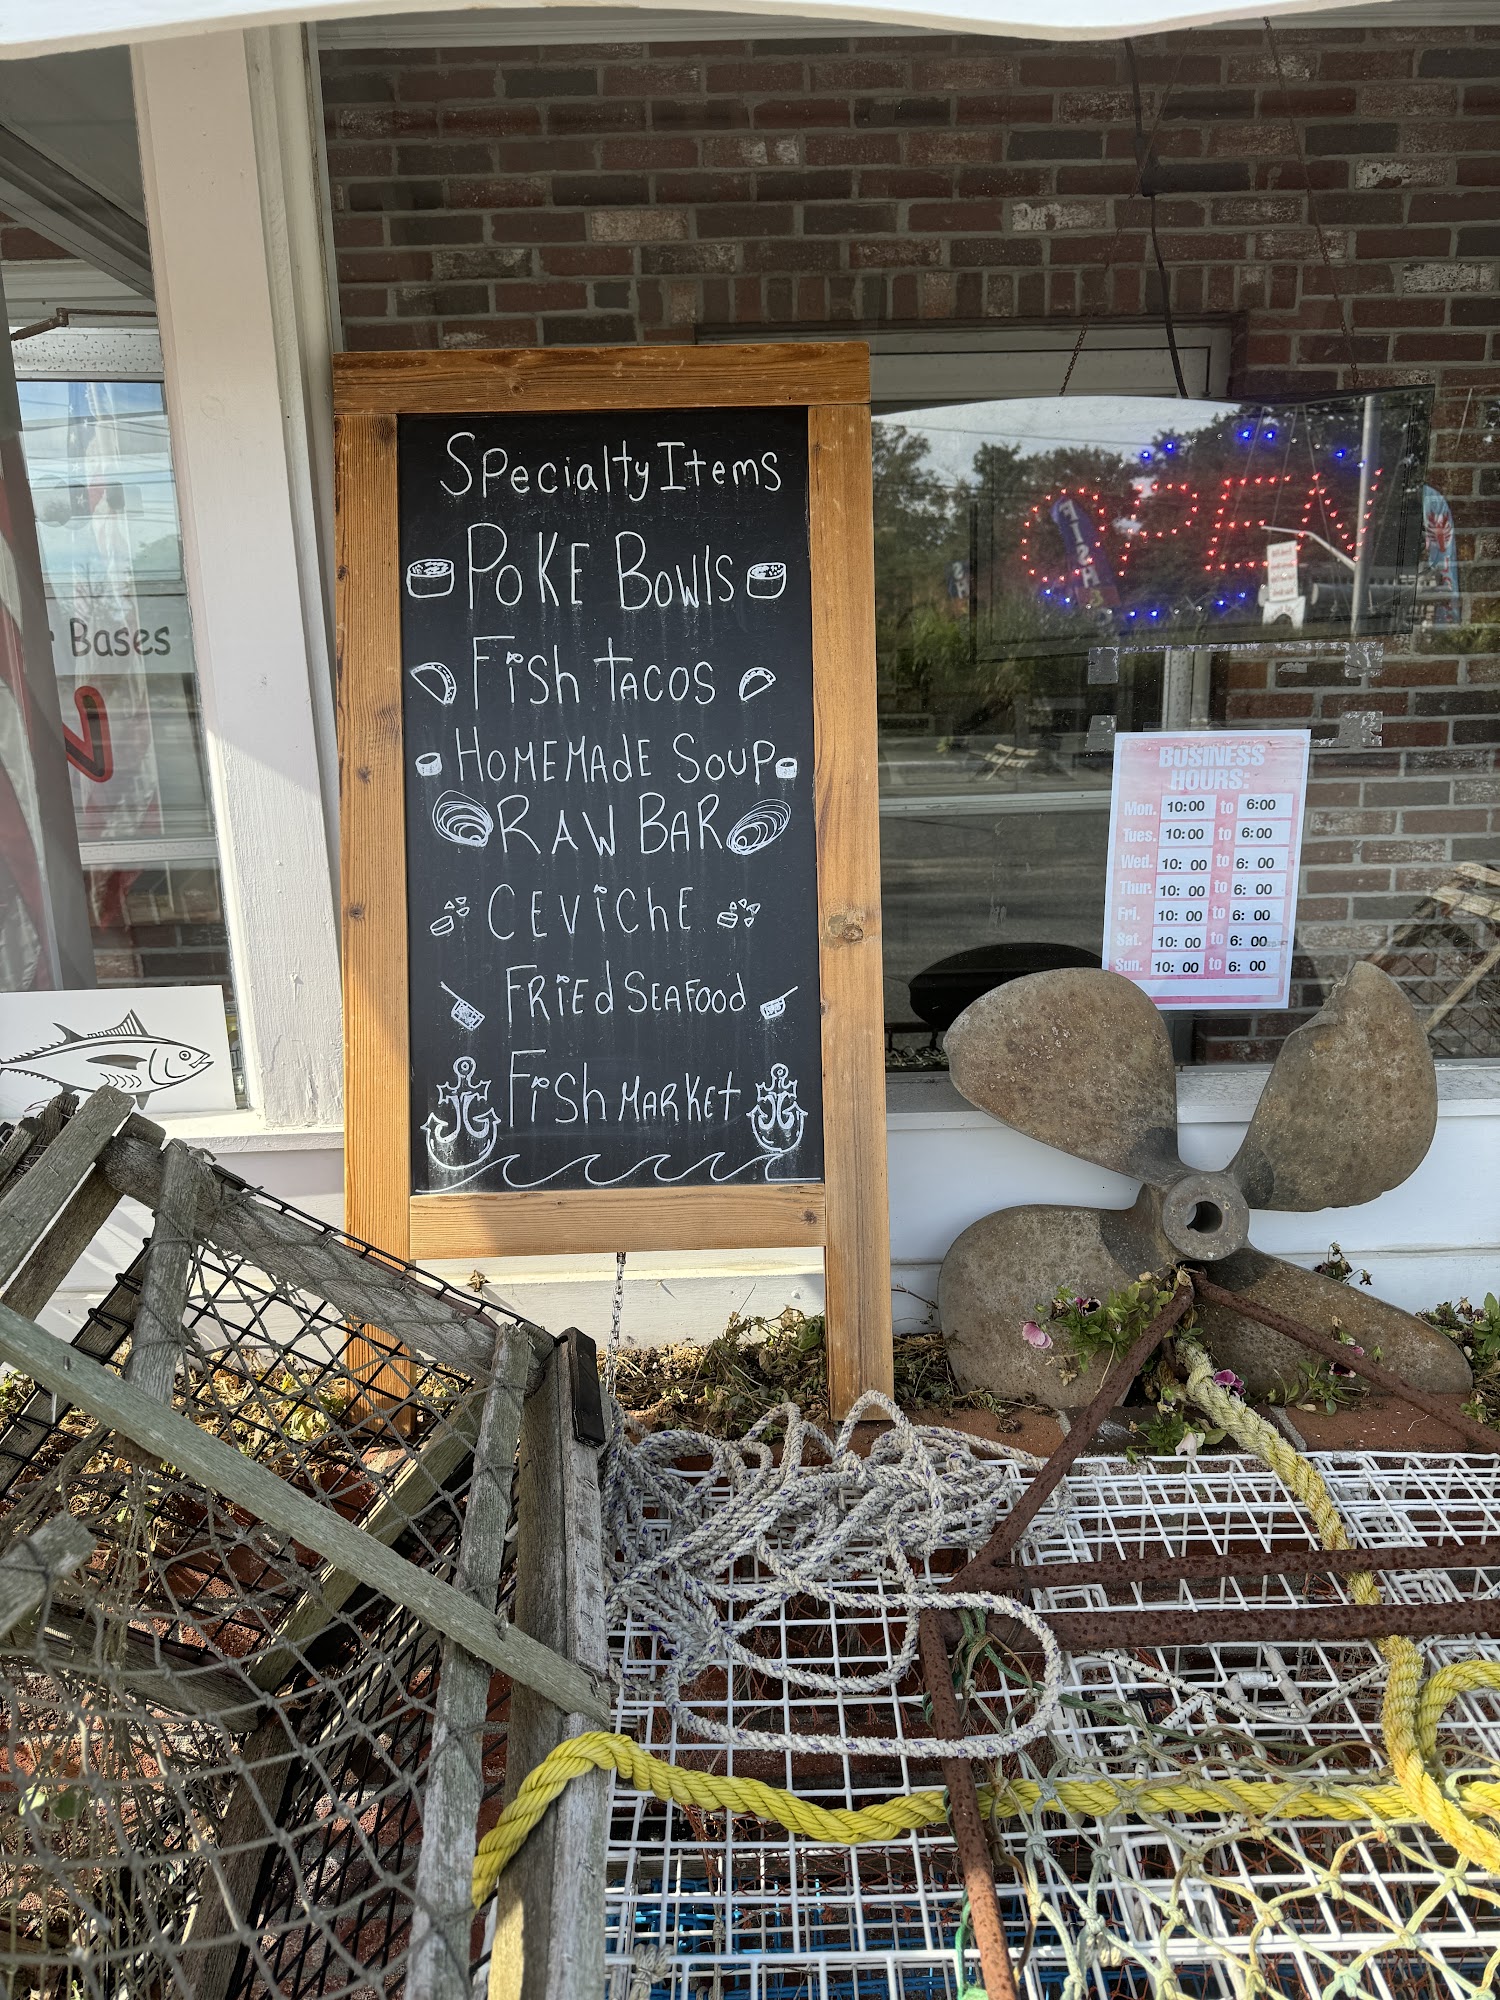 Specialty Items
POKE BOWlS
Fish TACOS
HOMEMAdE SOUP
RAW BAR
CEViChE
FRiEd SEAFOOd
Fish MARKEt
JG
JG
OPEN
FISH
Bases
BUSINESS
HOURS:
Mon. 10:00 to 6:00
Tues. 10:00 to 6:00
Wed. 10: 00 to 6: 00
Thur. 10: 00 to 6: 00
Fri. 10: 00 to 6: 00
Sat. 10: 00 to 6: 00
Sun. 10: 00 to 6: 00